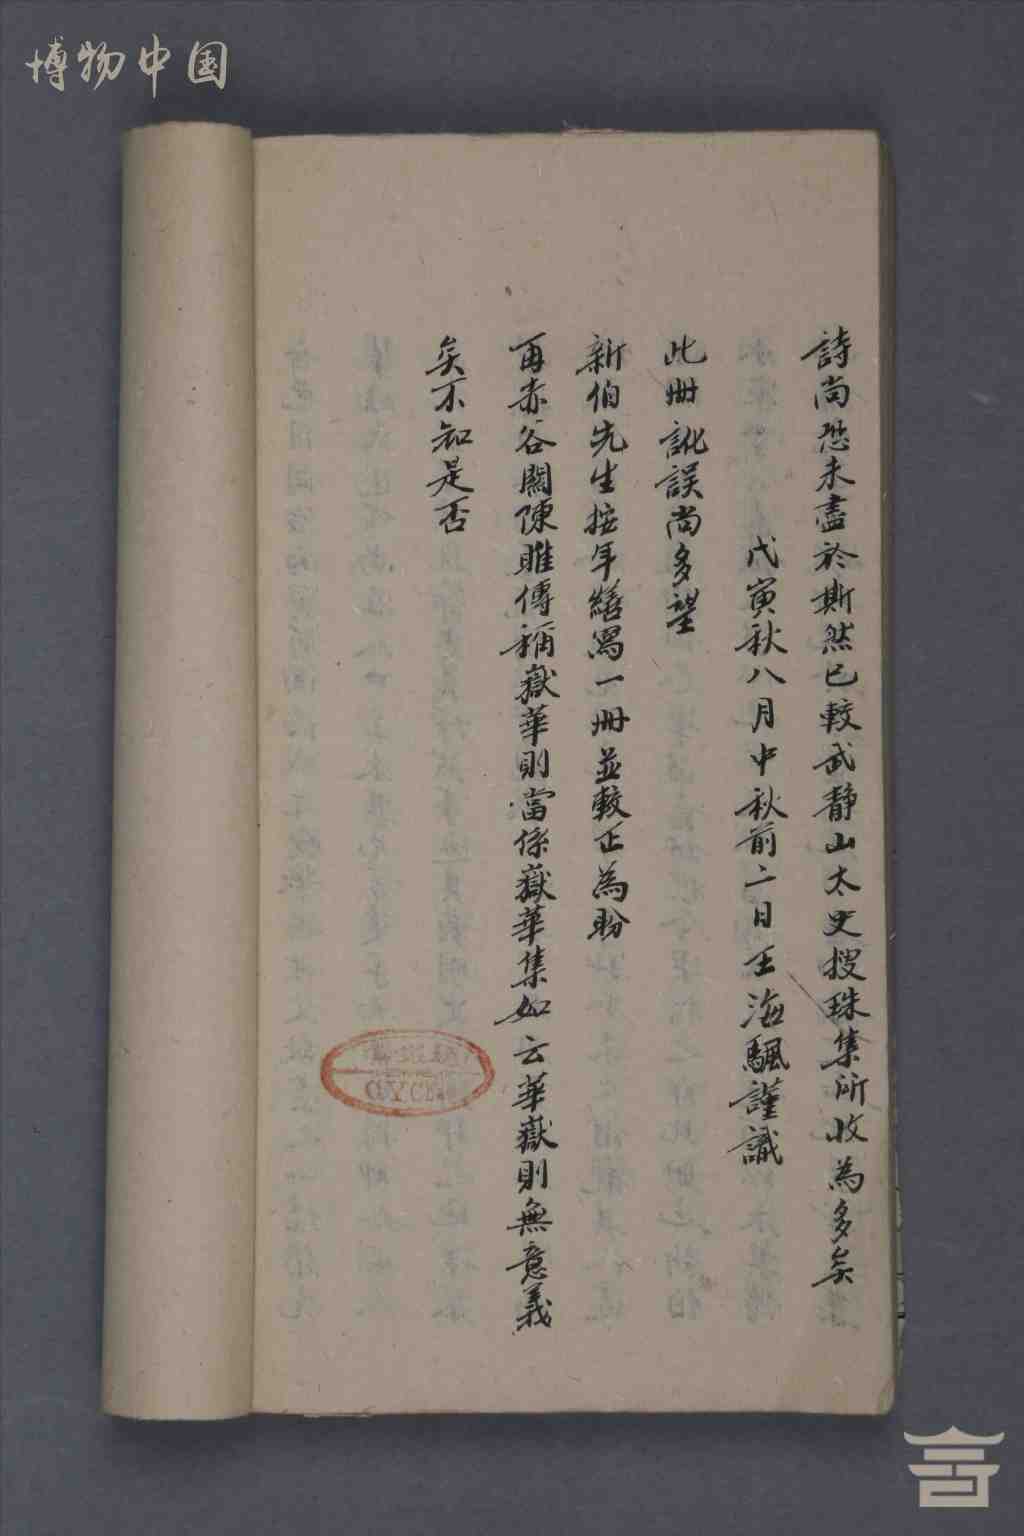 博物中国
詩尚恐未盡於斯然已較武靜山太史搜珠集所收為多矣
戊寅秋八月中秋前二日王海颿謹識
此冊訛誤尚多望
新伯先生按年繕寫一冊並較正為盼
再赤谷關陳睢傳稱嶽華則當係嶽華集如云華嶽則無意義
矣不知是否